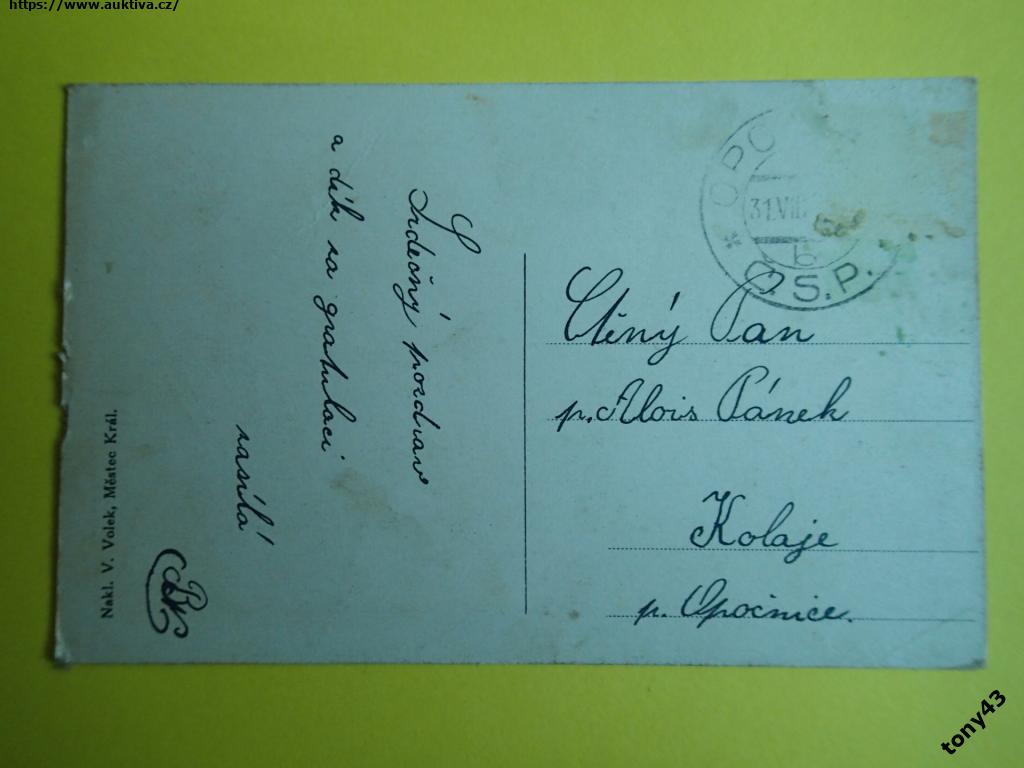 https://www.auktiva.cz/
Srdečný pozdrav
a dík za gratulaci
zasílá
Nakl. V. Volek, Městec Král.
* OPO
31.VII
b
O.S.P.
Ctěný Pan
p. Alois Pánek
Kolaje
p. Opočnice.
tony43